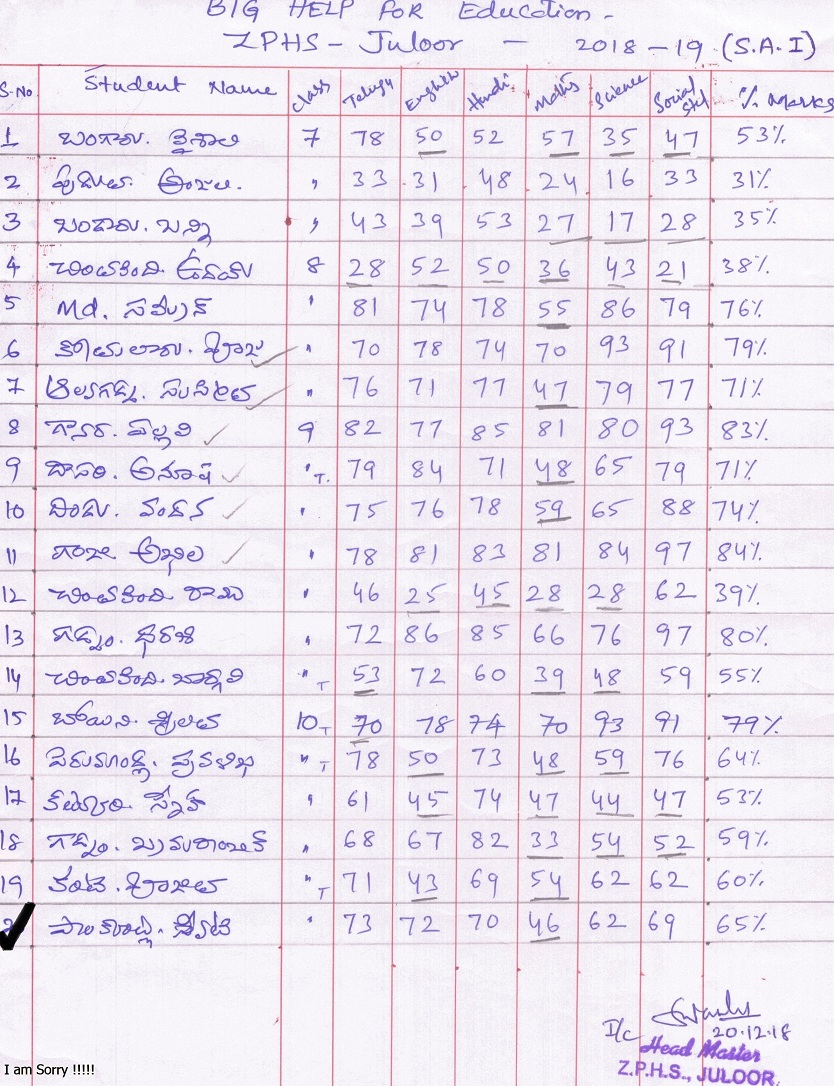 BIG HELP FOR Education -
ZPHS - Juloor - 2018-19 (S.A.I)
S.No Student Name Class Telugu English Hindi Maths Science Social Std % Marks
1 బంగారు. వైశాలి 7 78 50 52 57 35 47 53%
2 అంజలి. " 33 31 48 24 16 33 31%
3 బండారు. బన్ని " 43 39 53 27 17 28 35%
4 చింతకింది. ఉదయ్ 8 28 52 50 36 43 21 38%
5 Md. " 81 74 78 55 86 79 76%
6 " 70 78 74 70 93 91 79%
7 " 76 71 77 47 79 77 71%
8 పల్లవి 9 82 77 85 81 80 93 83%
9 దాసరి. అనూష " T. 79 84 71 48 65 79 71%
10 వందన " 75 76 78 59 65 88 74%
11 గంజి అఖిల " 78 81 83 81 84 97 84%
12 చింతకింది రాము " 46 25 45 28 28 62 39%
13 గడ్డం. ధరణి " 72 86 85 66 76 97 80%
14 చింతకింది. భార్గవి " T 53 72 60 39 48 59 55%
15 బోయిని. శ్రీలత 10 T 70 78 74 70 93 91 79%
16 " T 78 50 73 48 59 76 64%
17 " 61 45 74 47 44 47 53%
18 గడ్డం. " 68 67 82 33 54 52 59%
19 " T 71 43 69 54 62 62 60%
" 73 72 70 46 62 69 65%
I/c 20.12.18
Head Master
Z.P.H.S., JULOOR.
I am Sorry !!!!!